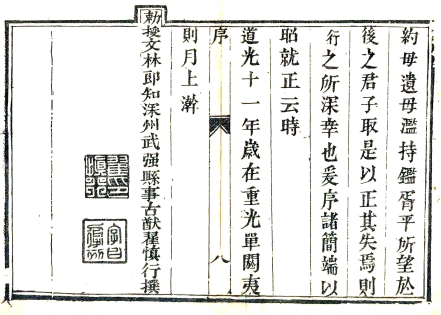 約毋遺毋濫持鑑胥平所望於
後之君子取是以正其失焉則
行之所深幸也爰序諸簡端以
昭就正云時
道光十一年歲在重光單閼夷
序
八
則月上澣
勅授文林郎知深州武强縣事古猷翟慎行撰